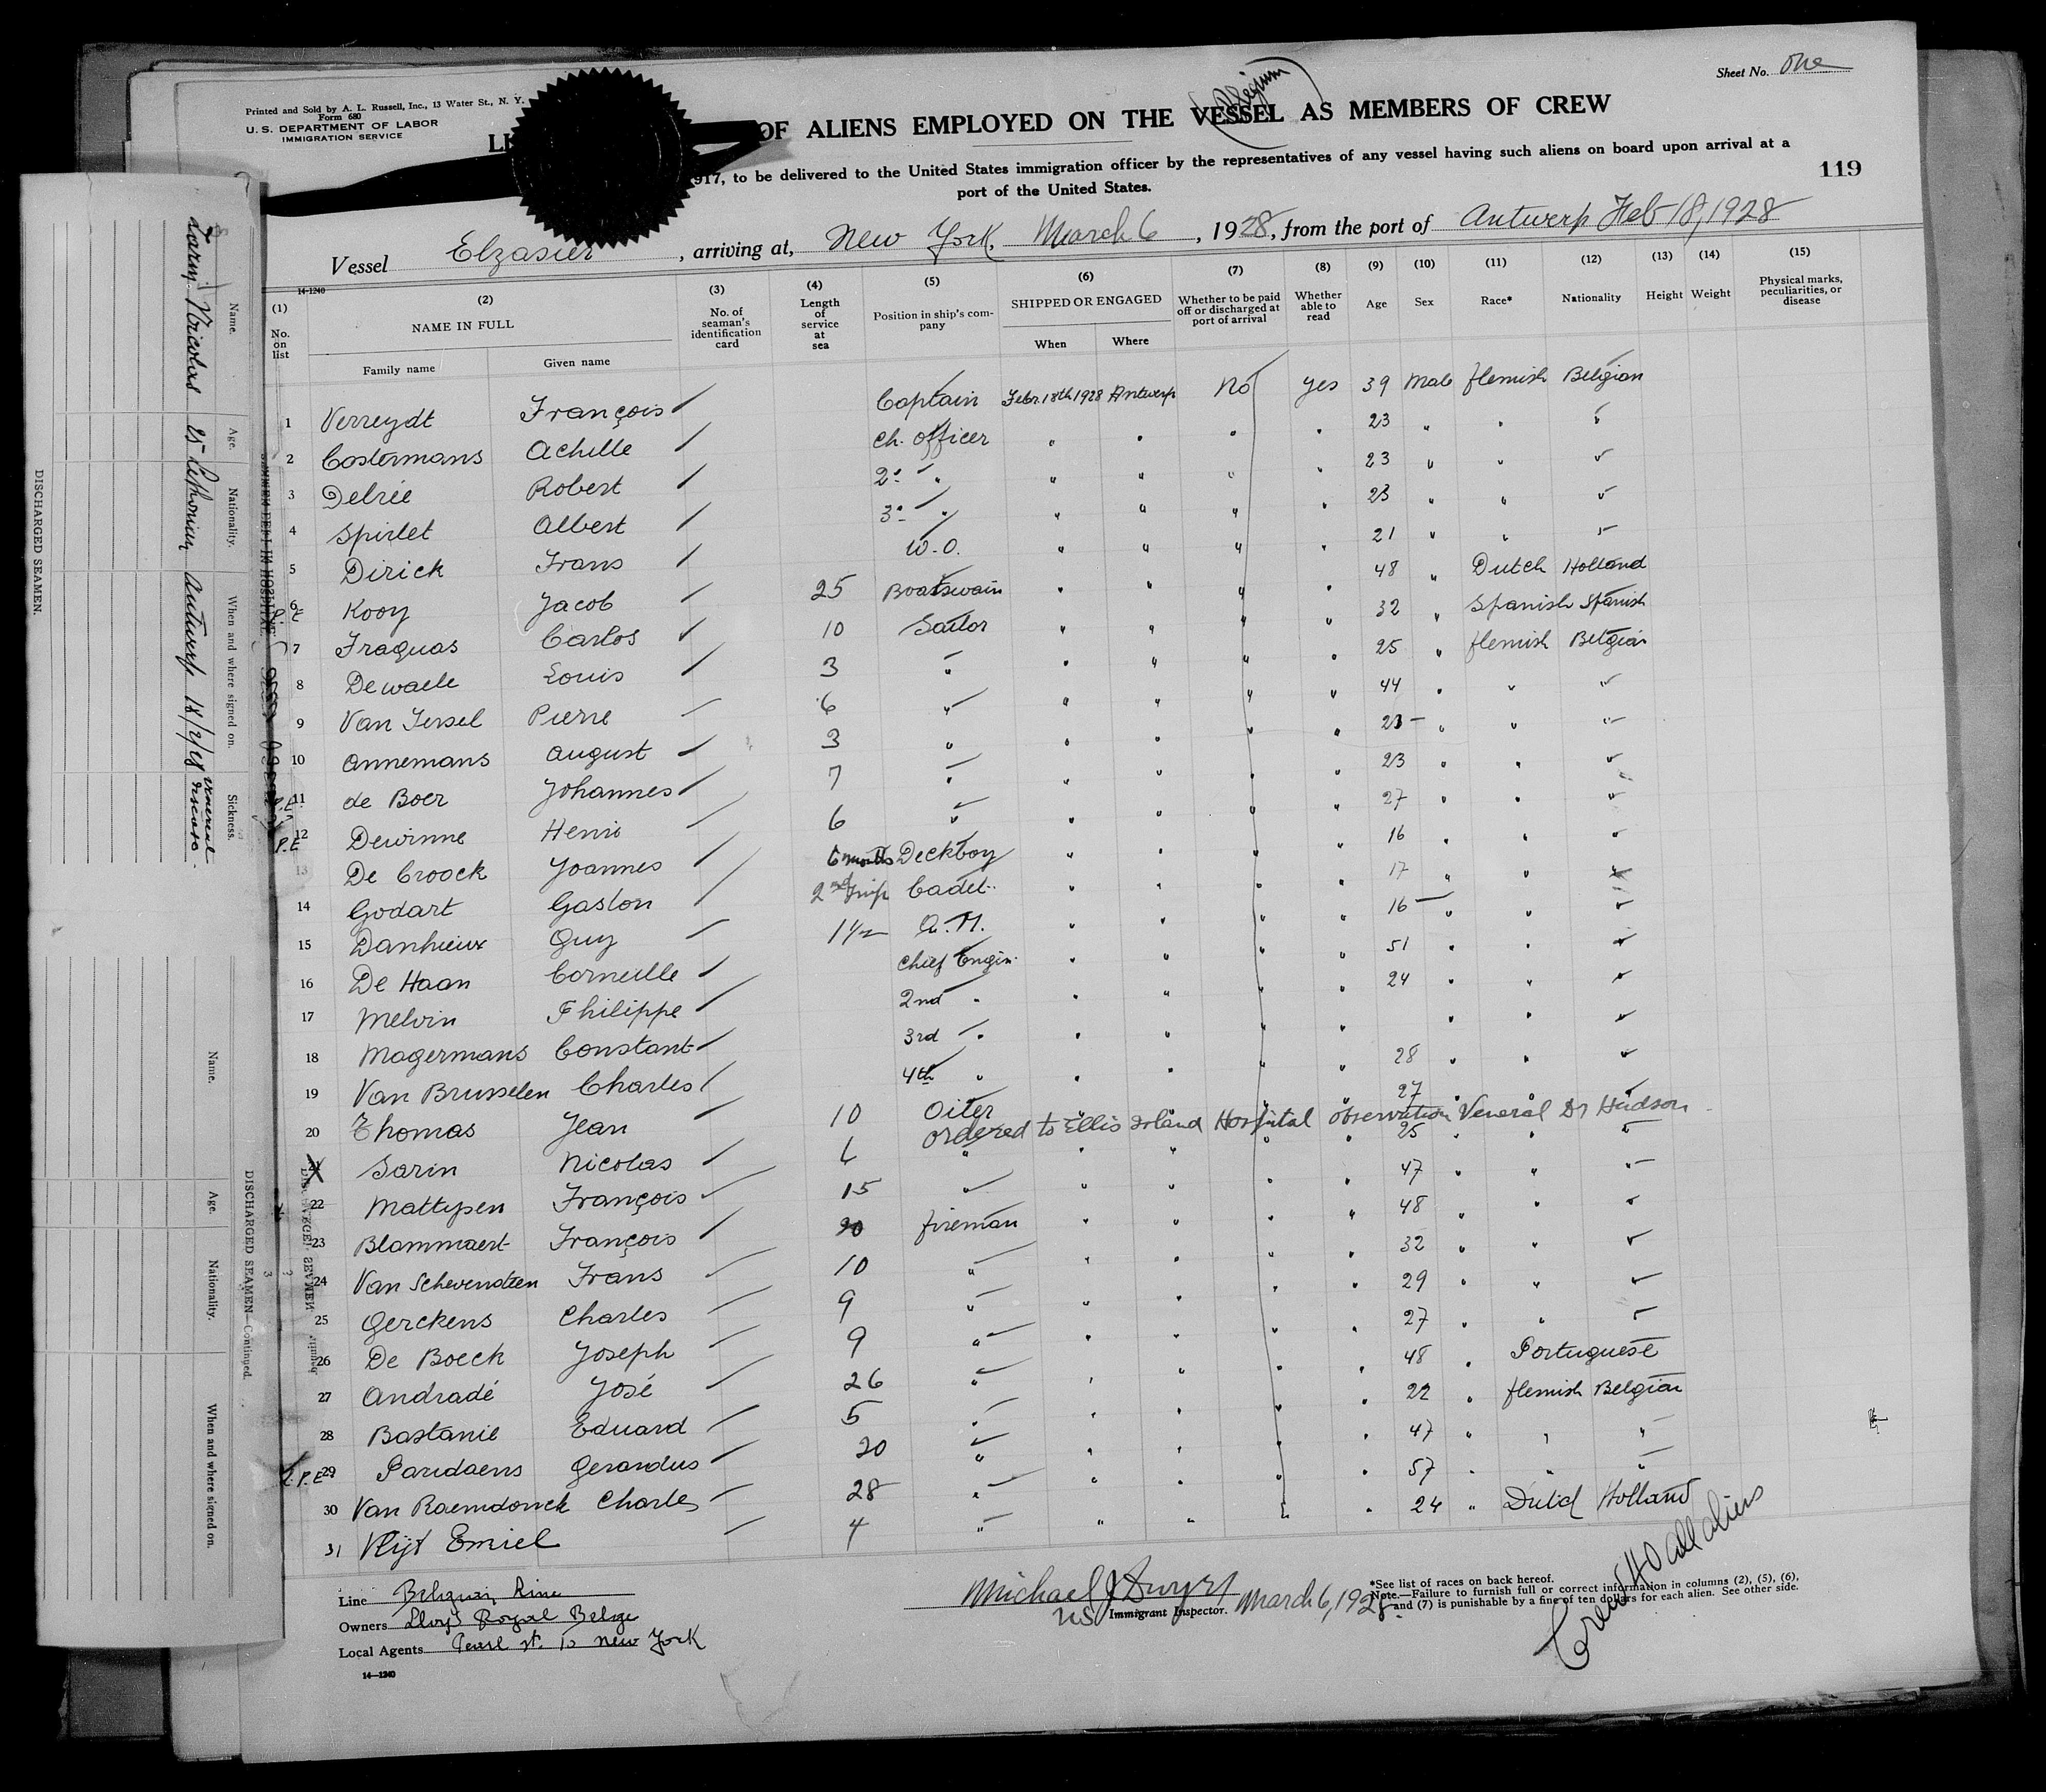 Sheet No. One
Printed and Sold by A. L. Russell, Inc., 13 Water St., N. Y.
Form 680
U. S. DEPARTMENT OF LABOR
IMMIGRATION SERVICE
(Belgium)
OF ALIENS EMPLOYED ON THE VESSEL AS MEMBERS OF CREW
917, to be delivered to the United States immigration officer by the representatives of any vessel having such aliens on board upon arrival at a
port of the United States.
119
Vessel Elzasier, arriving at, New York, March 6, 1928, from the port of Antwerp Feb 18, 1928
14-1240
(1) No. on list (2) NAME IN FULL Family name Given name (3) No. of seaman's identification card (4) Length of service at sea (5) Position in ship's company (6) SHIPPED OR ENGAGED When Where (7) Whether to be paid off or discharged at port of arrival (8) Whether able to read (9) Age (10) Sex (11) Race* (12) Nationality (13) Height (14) Weight (15) Physical marks, peculiarities, or disease
1 Verreydt François Captain Febr. 18th 1928 Antwerp No yes 39 Male flemish Belgian
2 Costermans Achille ch. officer " " " " 23 " " "
3 Delrée Robert 2e " " " " " 23 " "
4 Spirlet Albert 3e " " " " " 23 " "
5 Dirick Frans W.O. " " " " 21 " "
6 P.E. Kooy Jacob 25 Boatswain " " " " 48 " Dutch Holland
7 Fraguas Carlos 10 Sailor " " " " 32 " Spanish Spanish
8 Dewaele Louis 3 " " " " " 25 " flemish Belgian
9 Van Jersel Pierre 6 " " " " " 44 " "
10 Annemans August 3 " " " " " 23 " "
11 P.E. de Boer Johannes 7 " " " " " 23 " "
12 P.E. Dewinne Henri 6 " " " " " 27 " "
13 De Croock Joannes 6 months Deckboy " " " " 16 " "
14 Godart Gaston 2nd trip Cadet " " " " 17 " "
15 Danhieux Guy 1 1/2 " " " " 16 " "
16 De Haan Corneille Chief Engin. " " " " 51 " "
17 Melvin Philippe 2nd " " " " " 24 " "
18 Magermans Constant 3rd " " " " " " "
19 Van Brusselen Charles 4th " " " " " 28 " "
20 Thomas Jean 10 Oiler " " " " 27 " "
ordered to Ellis Island Hospital observation Veneral Dr Hudson
21 Sarin Nicolas " " " " " 25 " "
22 Mattysen François 15 " " " " " 47 " "
23 Blammaert François fireman " " " " 48 " "
24 Van Schevendeen Frans 10 " " " " " 32 " "
25 Gerckens Charles 9 " " " " " 29 " "
26 De Boeck Joseph 9 " " " " " 27 " "
27 Andradé José 26 " " " " " 48 " Portuguese
28 Bastanie Eduard 5 " " " " " 22 " flemish Belgian
29 P.E. Paridaens Gerardus 20 " " " " " 47 " " "
30 Van Raemdonck Charles 28 " " " " " 57 " " "
31 Vlijt Emiel 4 " " " " " 24 " Dutch Holland
Line Belgian Line
Owners Lloyd Royal Belge
Local Agents Pearl st. 10 New York
14—1240
Michael J Dwyer March 6, 1928.
US Immigrant Inspector.
*See list of races on back hereof.
Note.—Failure to furnish full or correct information in columns (2), (5), (6),
and (7) is punishable by a fine of ten dollars for each alien. See other side.
Crew 40 all aliens
DISCHARGED SEAMEN.
Name. Age. Nationality. When and where signed on. Sickness.
Nicolas 25 Antwerp 18/2/28 venereal disease.
DISCHARGED SEAMEN—Continued.
Name. Age. Nationality. When and where signed on.